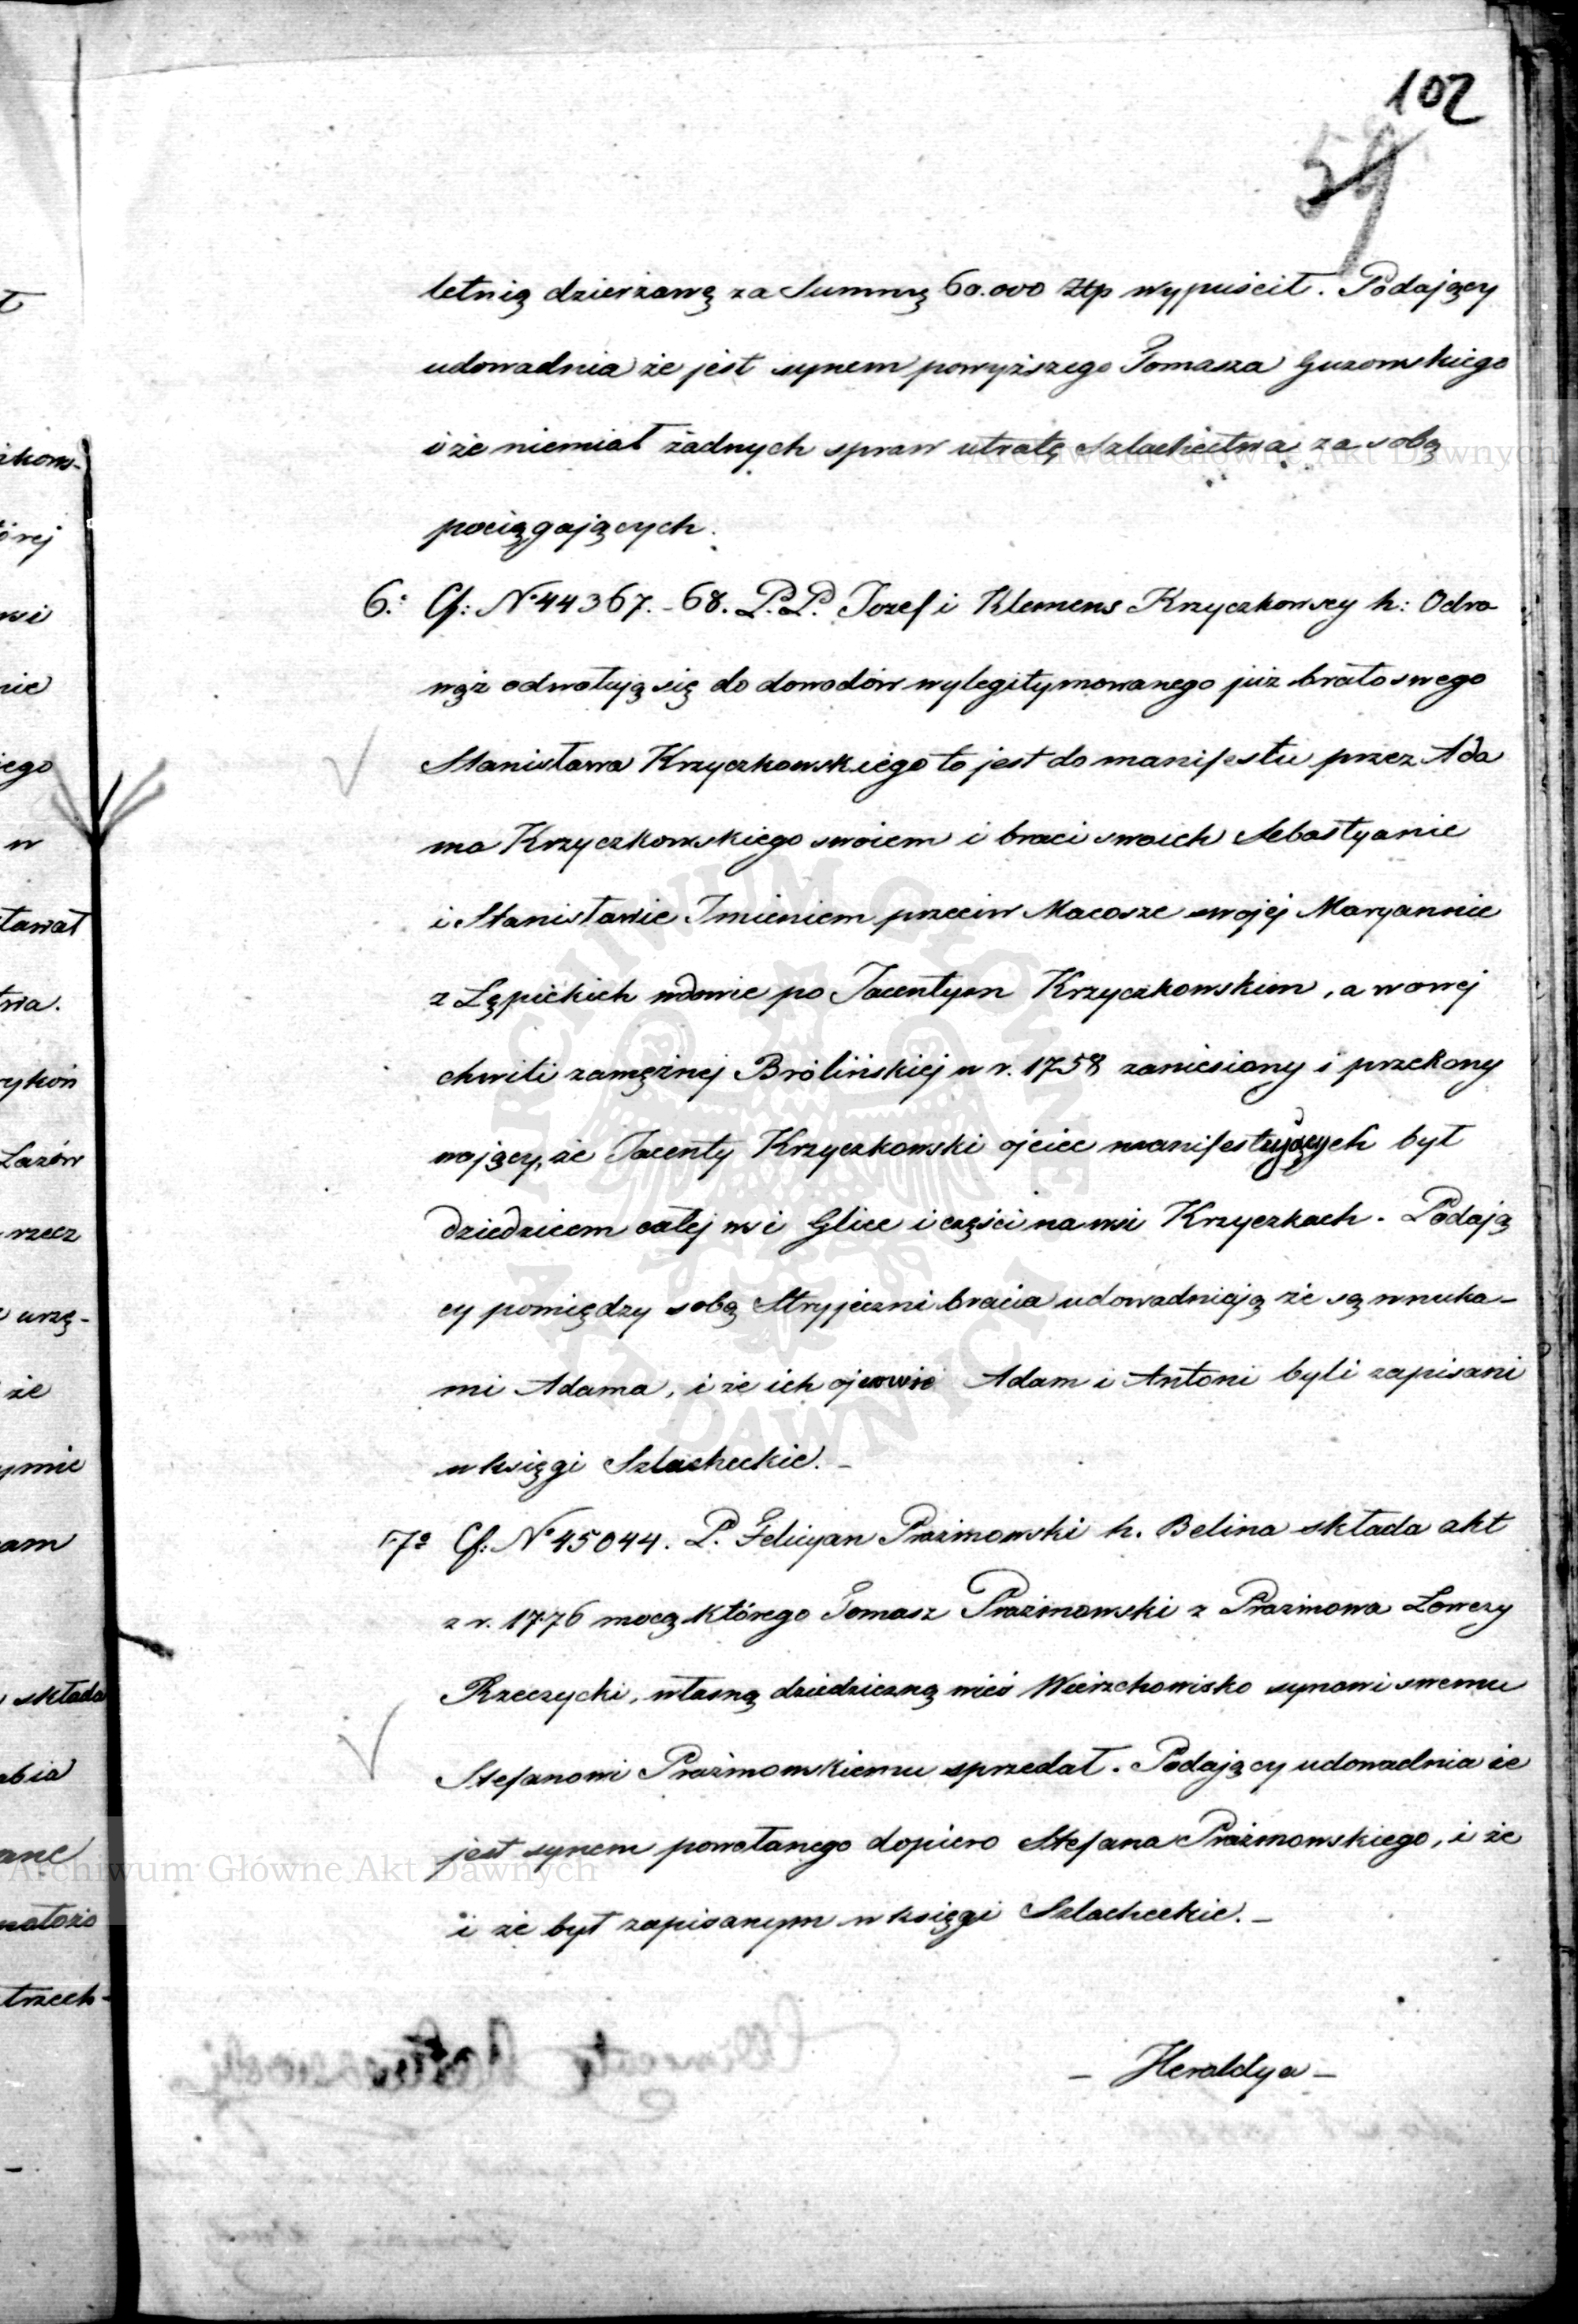 102
59
letnią dzierżawę za Summę 60.000 Złp wypuścił. Podający
udowadnia że jest synem powyższego Tomasza Guzowskiego
i że niemiał żadnych spraw utratę Szlachectwa za sobą
pociągających.
6.º Cf: Nº 44367.-68. P.P. Jozef i Klemens Krzyczkowscy h: Odro
wąż odwołują się do dowodów wylegitymowanego już brata swego
Stanisława Krzyczkowskiego to jest do manifestu przez Ada
ma Krzyczkowskiego swoiem i braci swoich Sebastyanie
i Stanisławie Imieniem przeciw Macosze swojej Maryannie
z Łępickich wdowie po Jacentym Krzyczkowskim, a w owej
chwili zamężnej Brólińskiej w r. 1758 zaniesiony i przekony
wający, że Jacenty Krzyczkowski ojciec manifestujących był
dziedzicem całej wsi Glice i części na wsi Krzyczkach. Podają
cy pomiędzy sobą Stryjeczni bracia udowadniają że są wnuka-
mi Adama, i że ich ojcowie Adam i Antoni byli zapisani
w księgi Szlacheckie. -
7º Cf: Nº 45044. P. Felicyan Prażmowski h. Belina składa akt
z r. 1776 mocą którego Tomasz Prażmowski z Prażmowa Łowczy
Rzeczycki, własną dziedziczną wieś Wierzchowisko synowi swemu
Stefanowi Prażmowskiemu sprzedał. Podający udowadnia że
jest synem powołanego dopiero Stefana Prażmowskiego, i że
i że był zapisanym w księgi Szlacheckie. -
- Heroldya -
Archiwum Główne Akt Dawnych
Archiwum Główne Akt Dawnych
ARCHIWUM GŁÓWNE
AKT DAWNYCH